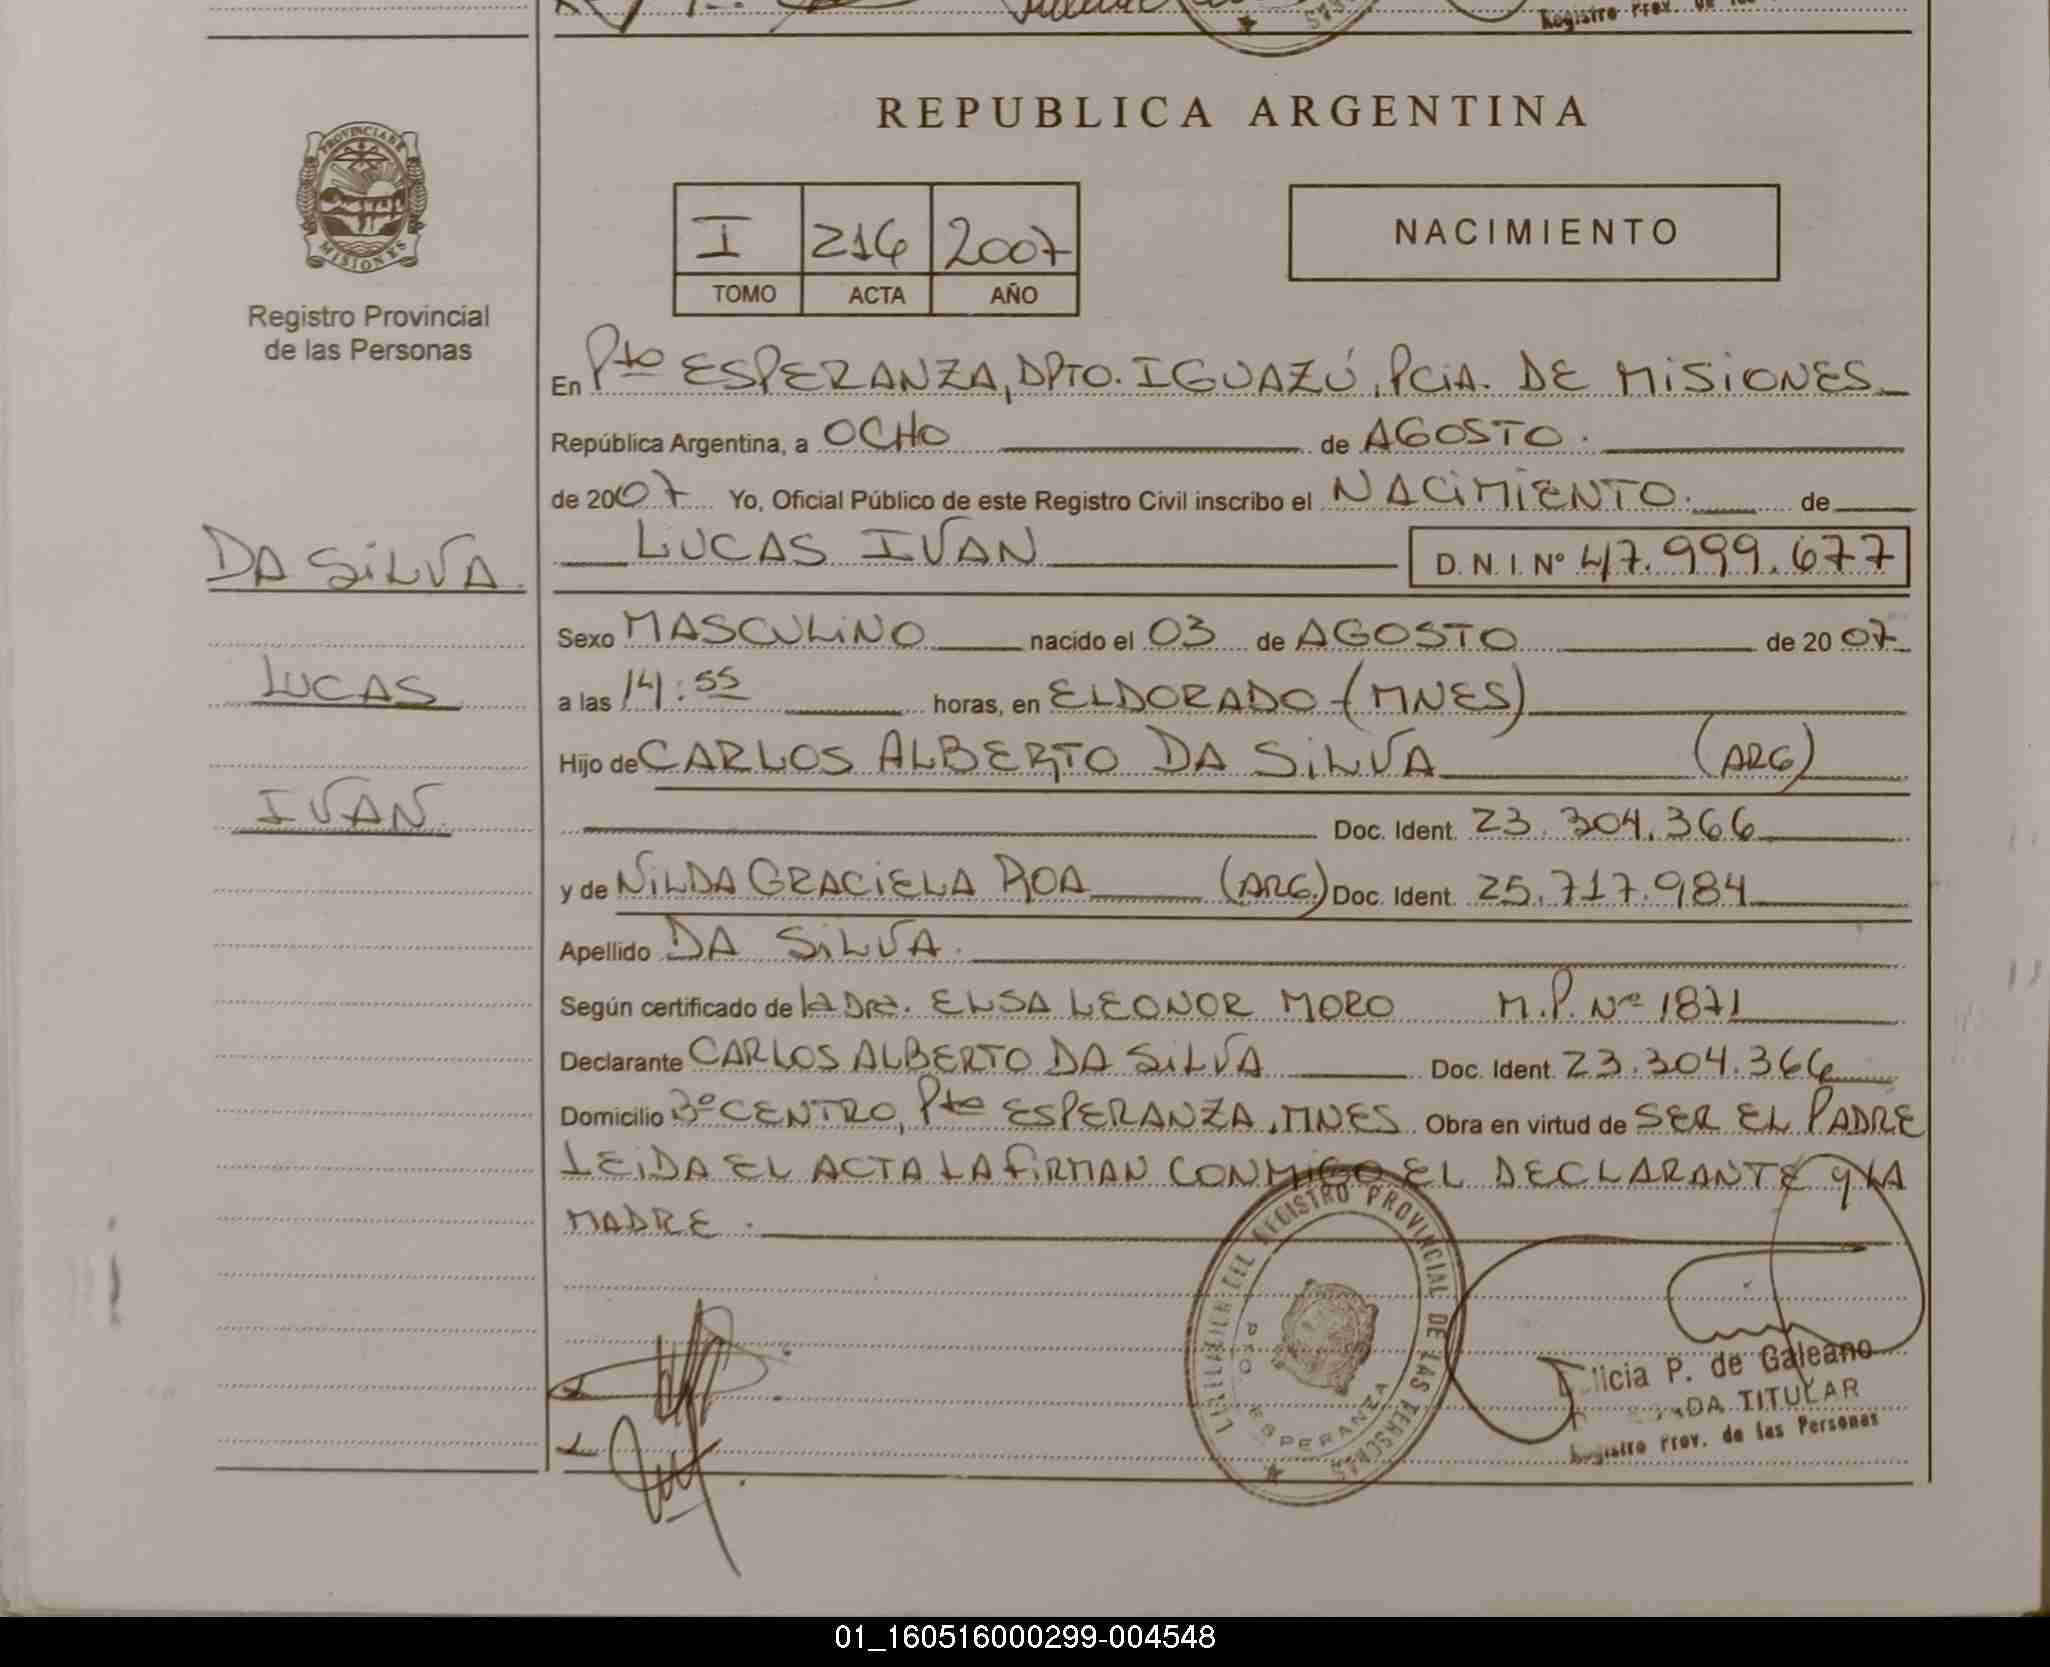 REPUBLICA ARGENTINA
PROVINCIA DE MISIONES
Registro Provincial
de las Personas
I 216 2007
TOMO ACTA AÑO
NACIMIENTO
En Pto ESPERANZA, DPTO. IGUAZÚ, PCiA. DE MiSiONES
República Argentina, a OCHO de AGOSTO.
de 2007 Yo, Oficial Público de este Registro Civil inscribo el NACiMiENTO. de
DA SiLVA.
LUCAS IVAN D.N.I. Nº 47.999.677
Sexo MASCULiNO nacido el 03 de AGOSTO de 2007
LUCAS
a las 14:55 horas, en ELDORADO-(MNES)
Hijo de CARLOS ALBERTO DA SiLVA (ARG)
IVAN.
Doc. Ident. 23.304.366
y de NiLDA GRACiELA ROA (ARG.) Doc. Ident. 25.717.984
Apellido DA SiLVA.
Según certificado de la Dra. ELSA LEONOR MORO M.P. Nº 1871
Declarante CARLOS ALBERTO DA SiLVA Doc. Ident. 23.304.366
Domicilio Bº CENTRO, Pto ESPERANZA, MNES Obra en virtud de SER EL PADRE
LEiDA EL ACTA LA FiRMAN CONMiGO EL DECLARANTE y LA
MADRE.
REGISTRO PROVINCIAL DE LAS PERSONAS
PTO ESPERANZA
P. de Galeano
TITULAR
Registro Prov. de las Personas
01_160516000299-004548